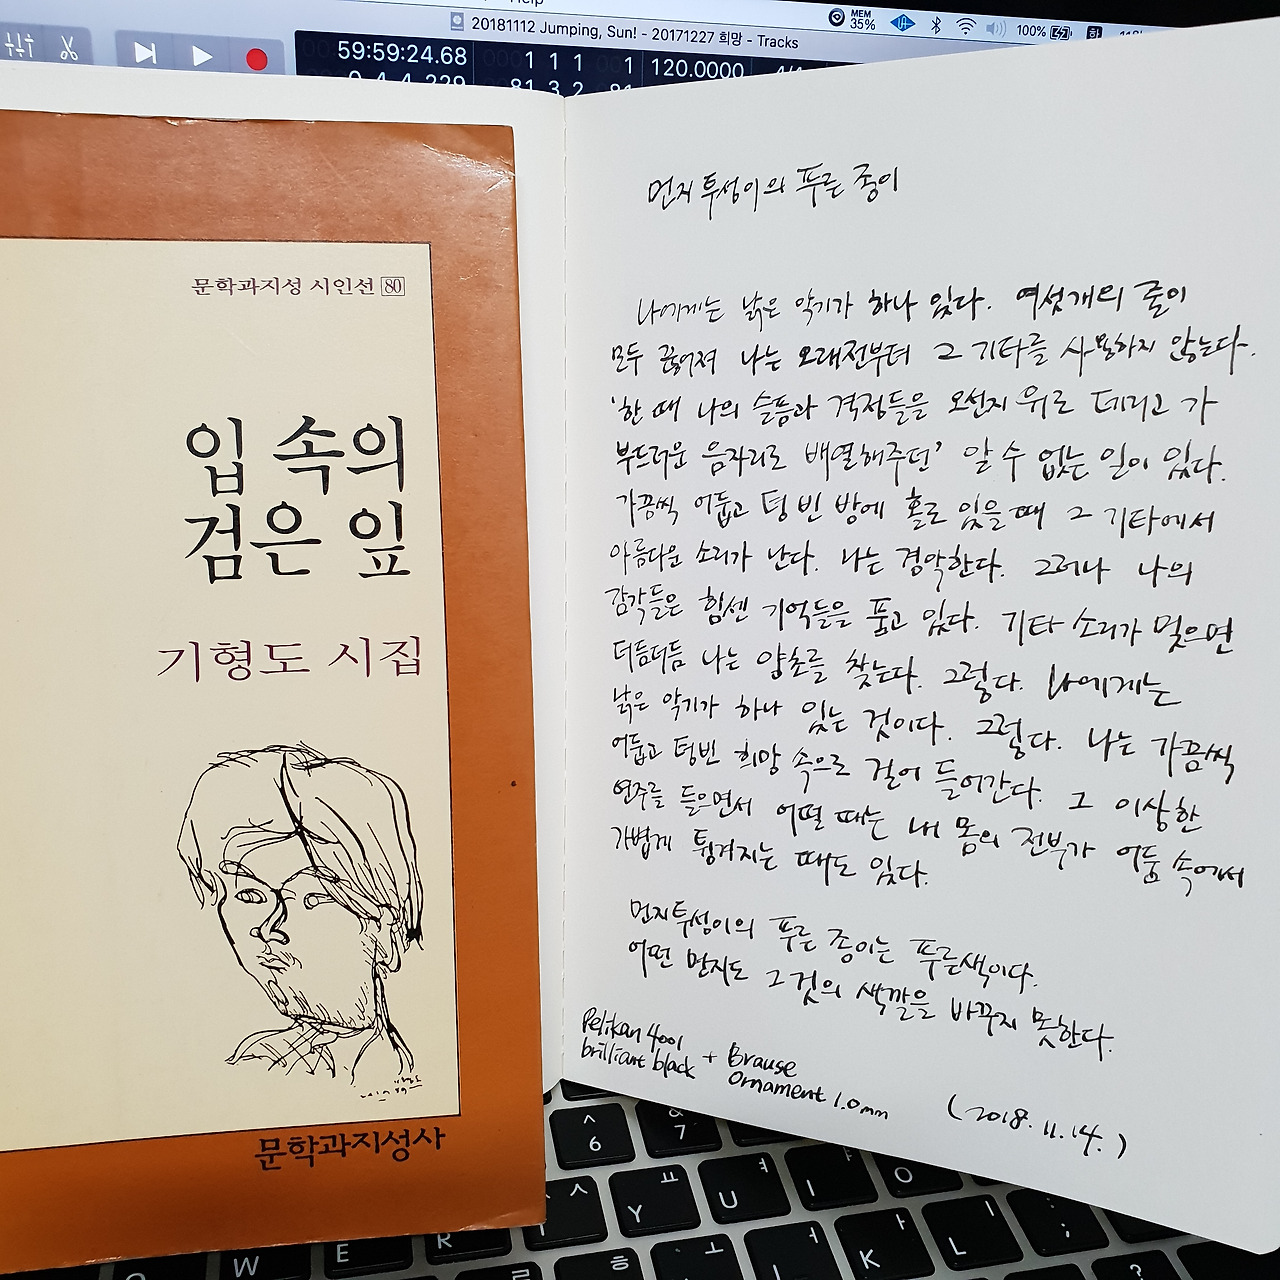 Help
20181112 Jumping, Sun! - 20171227 희망 - Tracks
MEM
35%
100%
59:59:24.68
1 1 1 1
120.0000
문학과지성 시인선 80
입 속의
검은 잎
기형도 시집
문학과지성사
먼지투성이의 푸른 종이
나에게는 낡은 악기가 하나 있다. 여섯개의 줄이
모두 끊어져 나는 오래전부터 그 기타를 사용하지 않는다.
'한 때 나의 슬픔과 격정들을 오선지 위로 데리고 가
부드러운 음자리로 배열해주던' 알 수 없는 일이 있다.
가끔씩 어둡고 텅 빈 방에 홀로 있을 때 그 기타에서
아름다운 소리가 난다. 나는 경악한다. 그러나 나의
감각들은 힘센 기억들을 품고 있다. 기타 소리가 멎으면
더듬더듬 나는 양초를 찾는다. 그렇다. 나에게는
낡은 악기가 하나 있는 것이다. 그렇다. 나는 가끔씩
어둡고 텅빈 희망 속으로 걸어 들어간다. 그 이상한
연주를 들으면서 어떨 때는 내 몸의 전부가 어둠 속에서
가볍게 튕겨지는 때도 있다.
먼지투성이의 푸른 종이는 푸른색이다.
어떤 먼지도 그것의 색깔을 바꾸지 못한다.
Pelikan 4001
brilliant black + Brause
Ornament 1.0mm
(2018. 11. 14.)
^ 6
& 7
ㅅ
Y ㅛ
U ㅕ
I ㅑ
O
W
E
R
ㄹ
ㅎ
ㅗ
J ㅓ
K ㅏ
L ㅣ
: ;
?